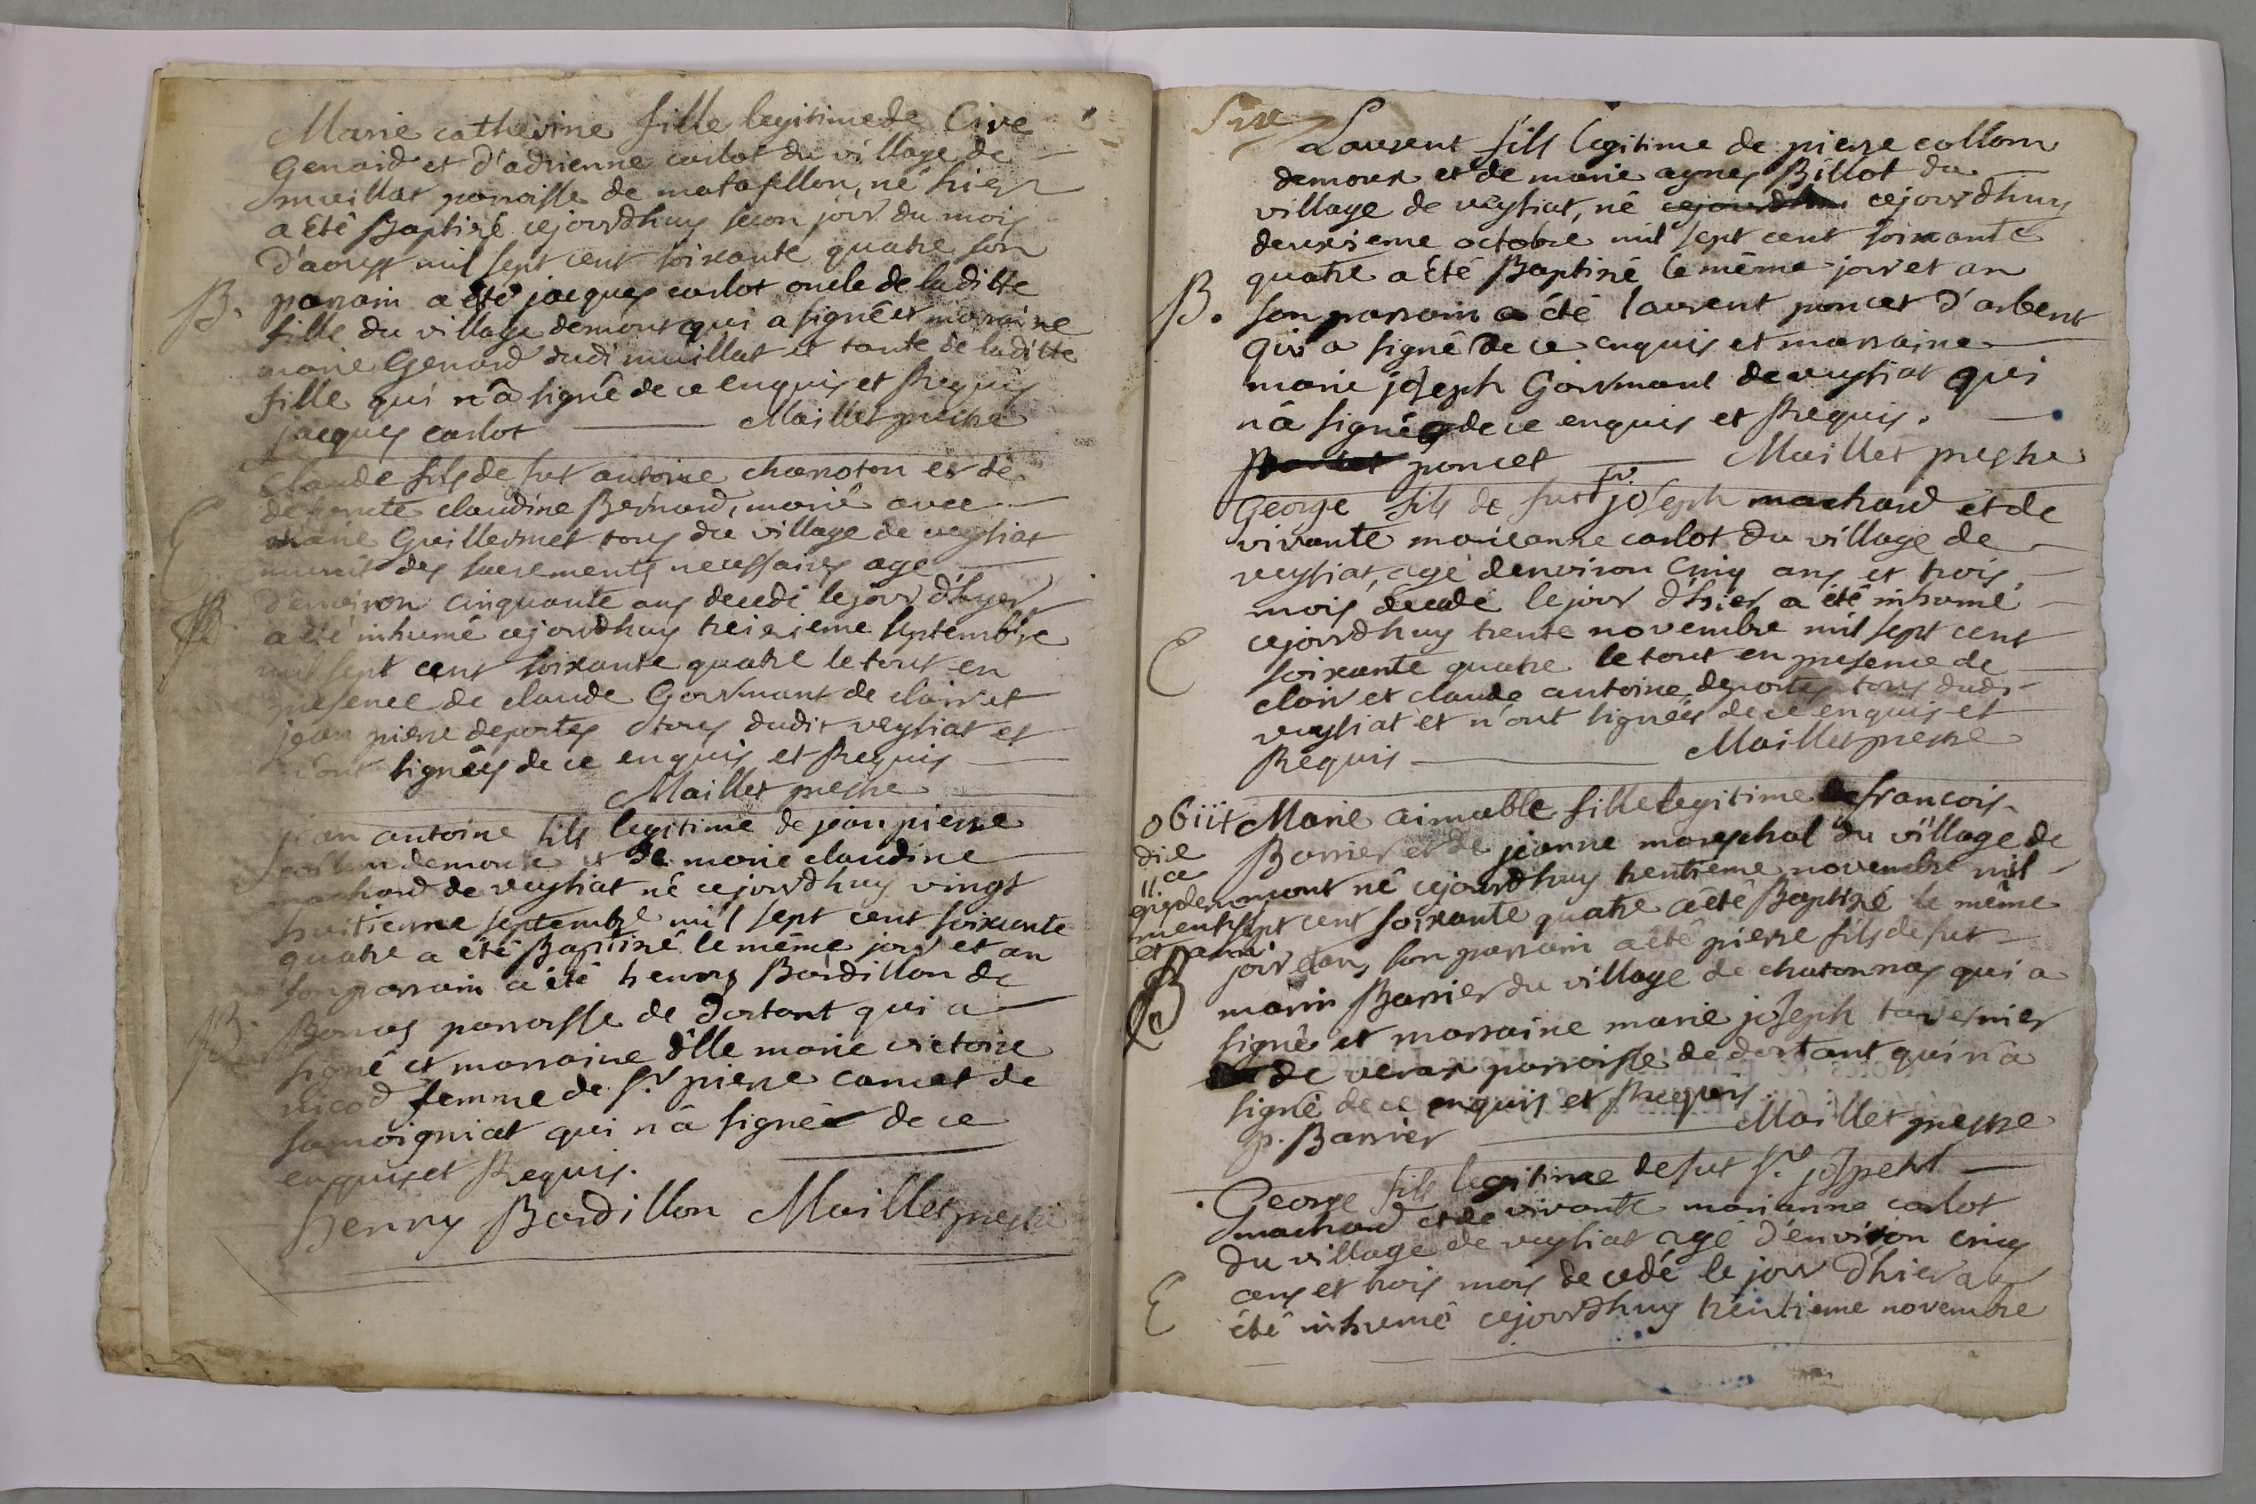 Marie catherine fille legitime de Cive
Genord et d'adrienne carlot du village de
muillat parroisse de matafellon, né hier
a été Baptizé cejourdhuy secon jour du mois
d'aoust mil sept cent soixante quatre son
B. parrain a été jacques carlot oncle de laditte
fille du village demont qui a signé et marraine
marie Genord dudi muillat et tante de laditte
fille qui n'â signé de ce enquis et Requis
jacques carlot Maillet prestre
Claude fils de fut antoine charroton et de
defunte claudine Bernard, marié avec
marie Guillermet tous du village de veyziat
E. munit des sacrements necessaires age
d'environ cinquante ans decedé le jour d'hyer
a été inhumé cejourdhuy treizieme septembre
mil sept cent soixante quatre le tout en
presence de claude Gourmant de clair et
jean pierre deportes tous dudit veyziat et
n'ont signées de ce enquis et Requis
Maillet prestre
jean antoine fils legitime de jean pierre
collom demoux et de marie claudine
machard de veyziat né cejourdhuy vingt
huitieme septembre mil sept cent soixante
quatre a été Baptizé le même jour et an
son parrain a été henry Bordillon de
B. Bonas parroisse de dortant qui a
signé et marraine d'lle marie victoire
nicod femme de sr. pierre carret de
samoigniat qui n'â signée de ce
enquis et Requis.
henry Bordillon Maillet prestre
Laurent fils legitime de pierre collom
demoux et de marie agnes Billot du
village de veyziat, né cejourdhuy cejourdhuy
deuxieme octobre mil sept cent soixante
quatre a été Baptizé le même jour et an
B. son parrain a été laurent poncet d'arbent
qui a signé de ce enquis et marraine
marie joseph Gourmant de veyziat qui
n'â signée de ce enquis et Requis.
poncet Maillet prestre
George fils de fut sr. joseph machard et de
vivante marieanne carlot du village de
veyziat, agé denviron Cinq ans et trois
mois decedé le jour d'hier a été inhumé
cejourdhuy trente novembre mil sept cent
E soixante quatre le tout en presence de
clair et claude antoine deportes tous dudi
veyziat et n'ont signées de ce enquis et
Requis Maillet prestre
obiit Marie aimable fille legitime de francois
die Barrier et de jeanne mareschal du village de
11a mont né cejourdhuy trentieme novembre mil
sept cent soixante quatre a été Baptizé le même
jour et an, son parrain a été pierre fils de fut
B marin Barrier du village de chatonnay qui a
signé et marraine marie joseph tavernier
de veraz parroisse de dortant qui n'a
signé de ce enquis et Requis
p. Barrier Maillet prestre
George fils legitime de fut sr. jospeht
machard et de vivante marianne carlot
du village de veyziat agé d'environ cinq
ans et trois mois decedé le jour d'hier a
E été inhumé cejourdhuy trentieme novembre